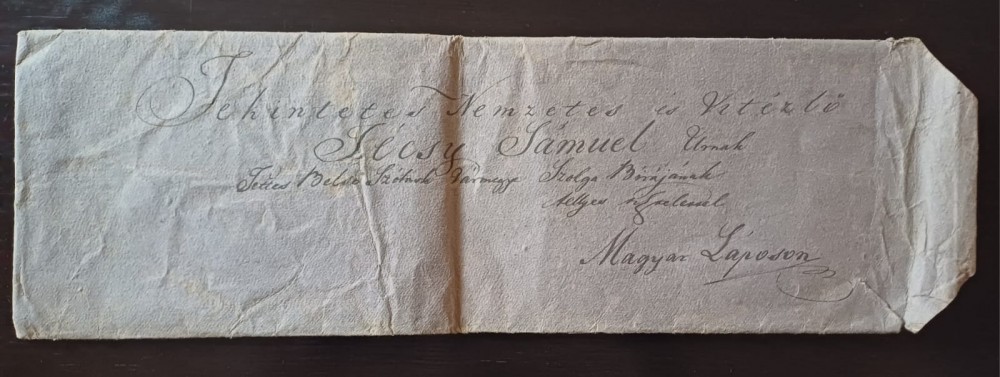 Tekintetes Nemzetes és Vitézlő
Sécsy Sámuel Urnak
Belső Szólnok Vármegye Szolga Birájának
tellyes tisztelettel
Magyar Láposon